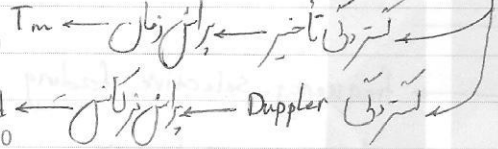 گستردگی تأخیر ← پراش زمان ← Tm
گستردگی Duppler ← پراش فرکانس ←